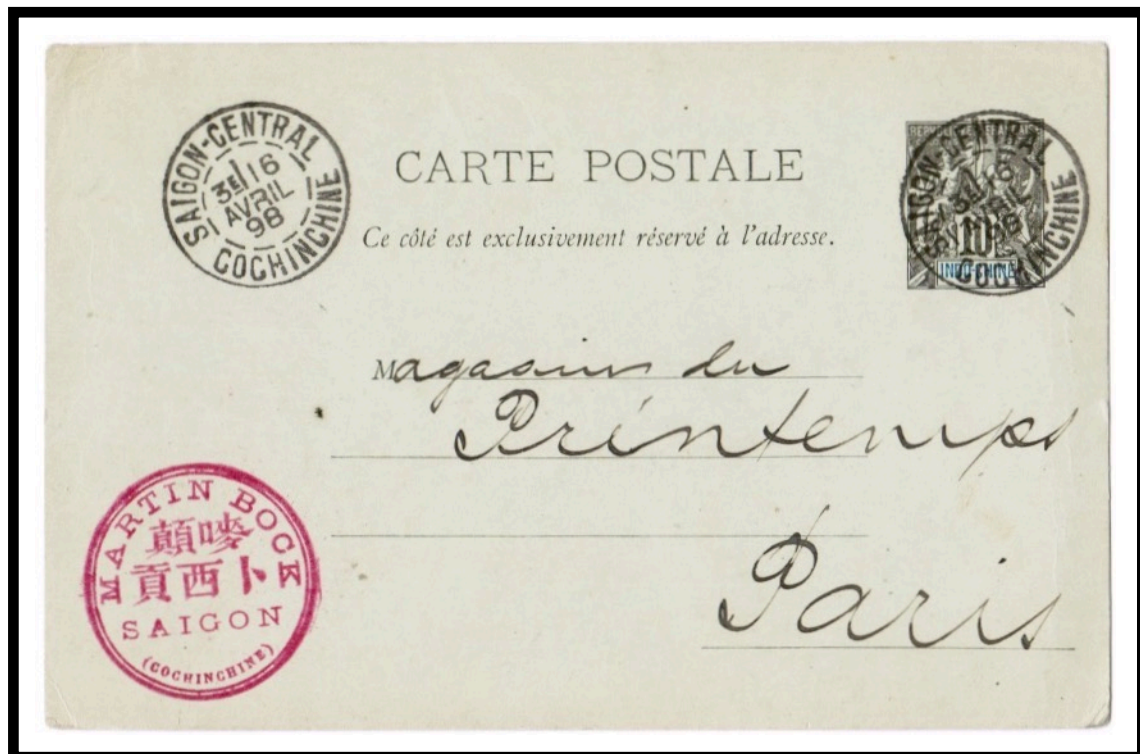 SAIGON-CENTRAL
1
3E 16
AVRIL
98
COCHINCHINE
CARTE POSTALE
Ce côté est exclusivement réservé à l'adresse.
SAIGON-CENTRAL
AVRIL
98
COCHINCHINE
10
INDO-CHINE
Magasins du
Printemps
Paris
MARTIN BOCK
顛嘜
貢西卜
SAIGON
(COCHINCHINE)